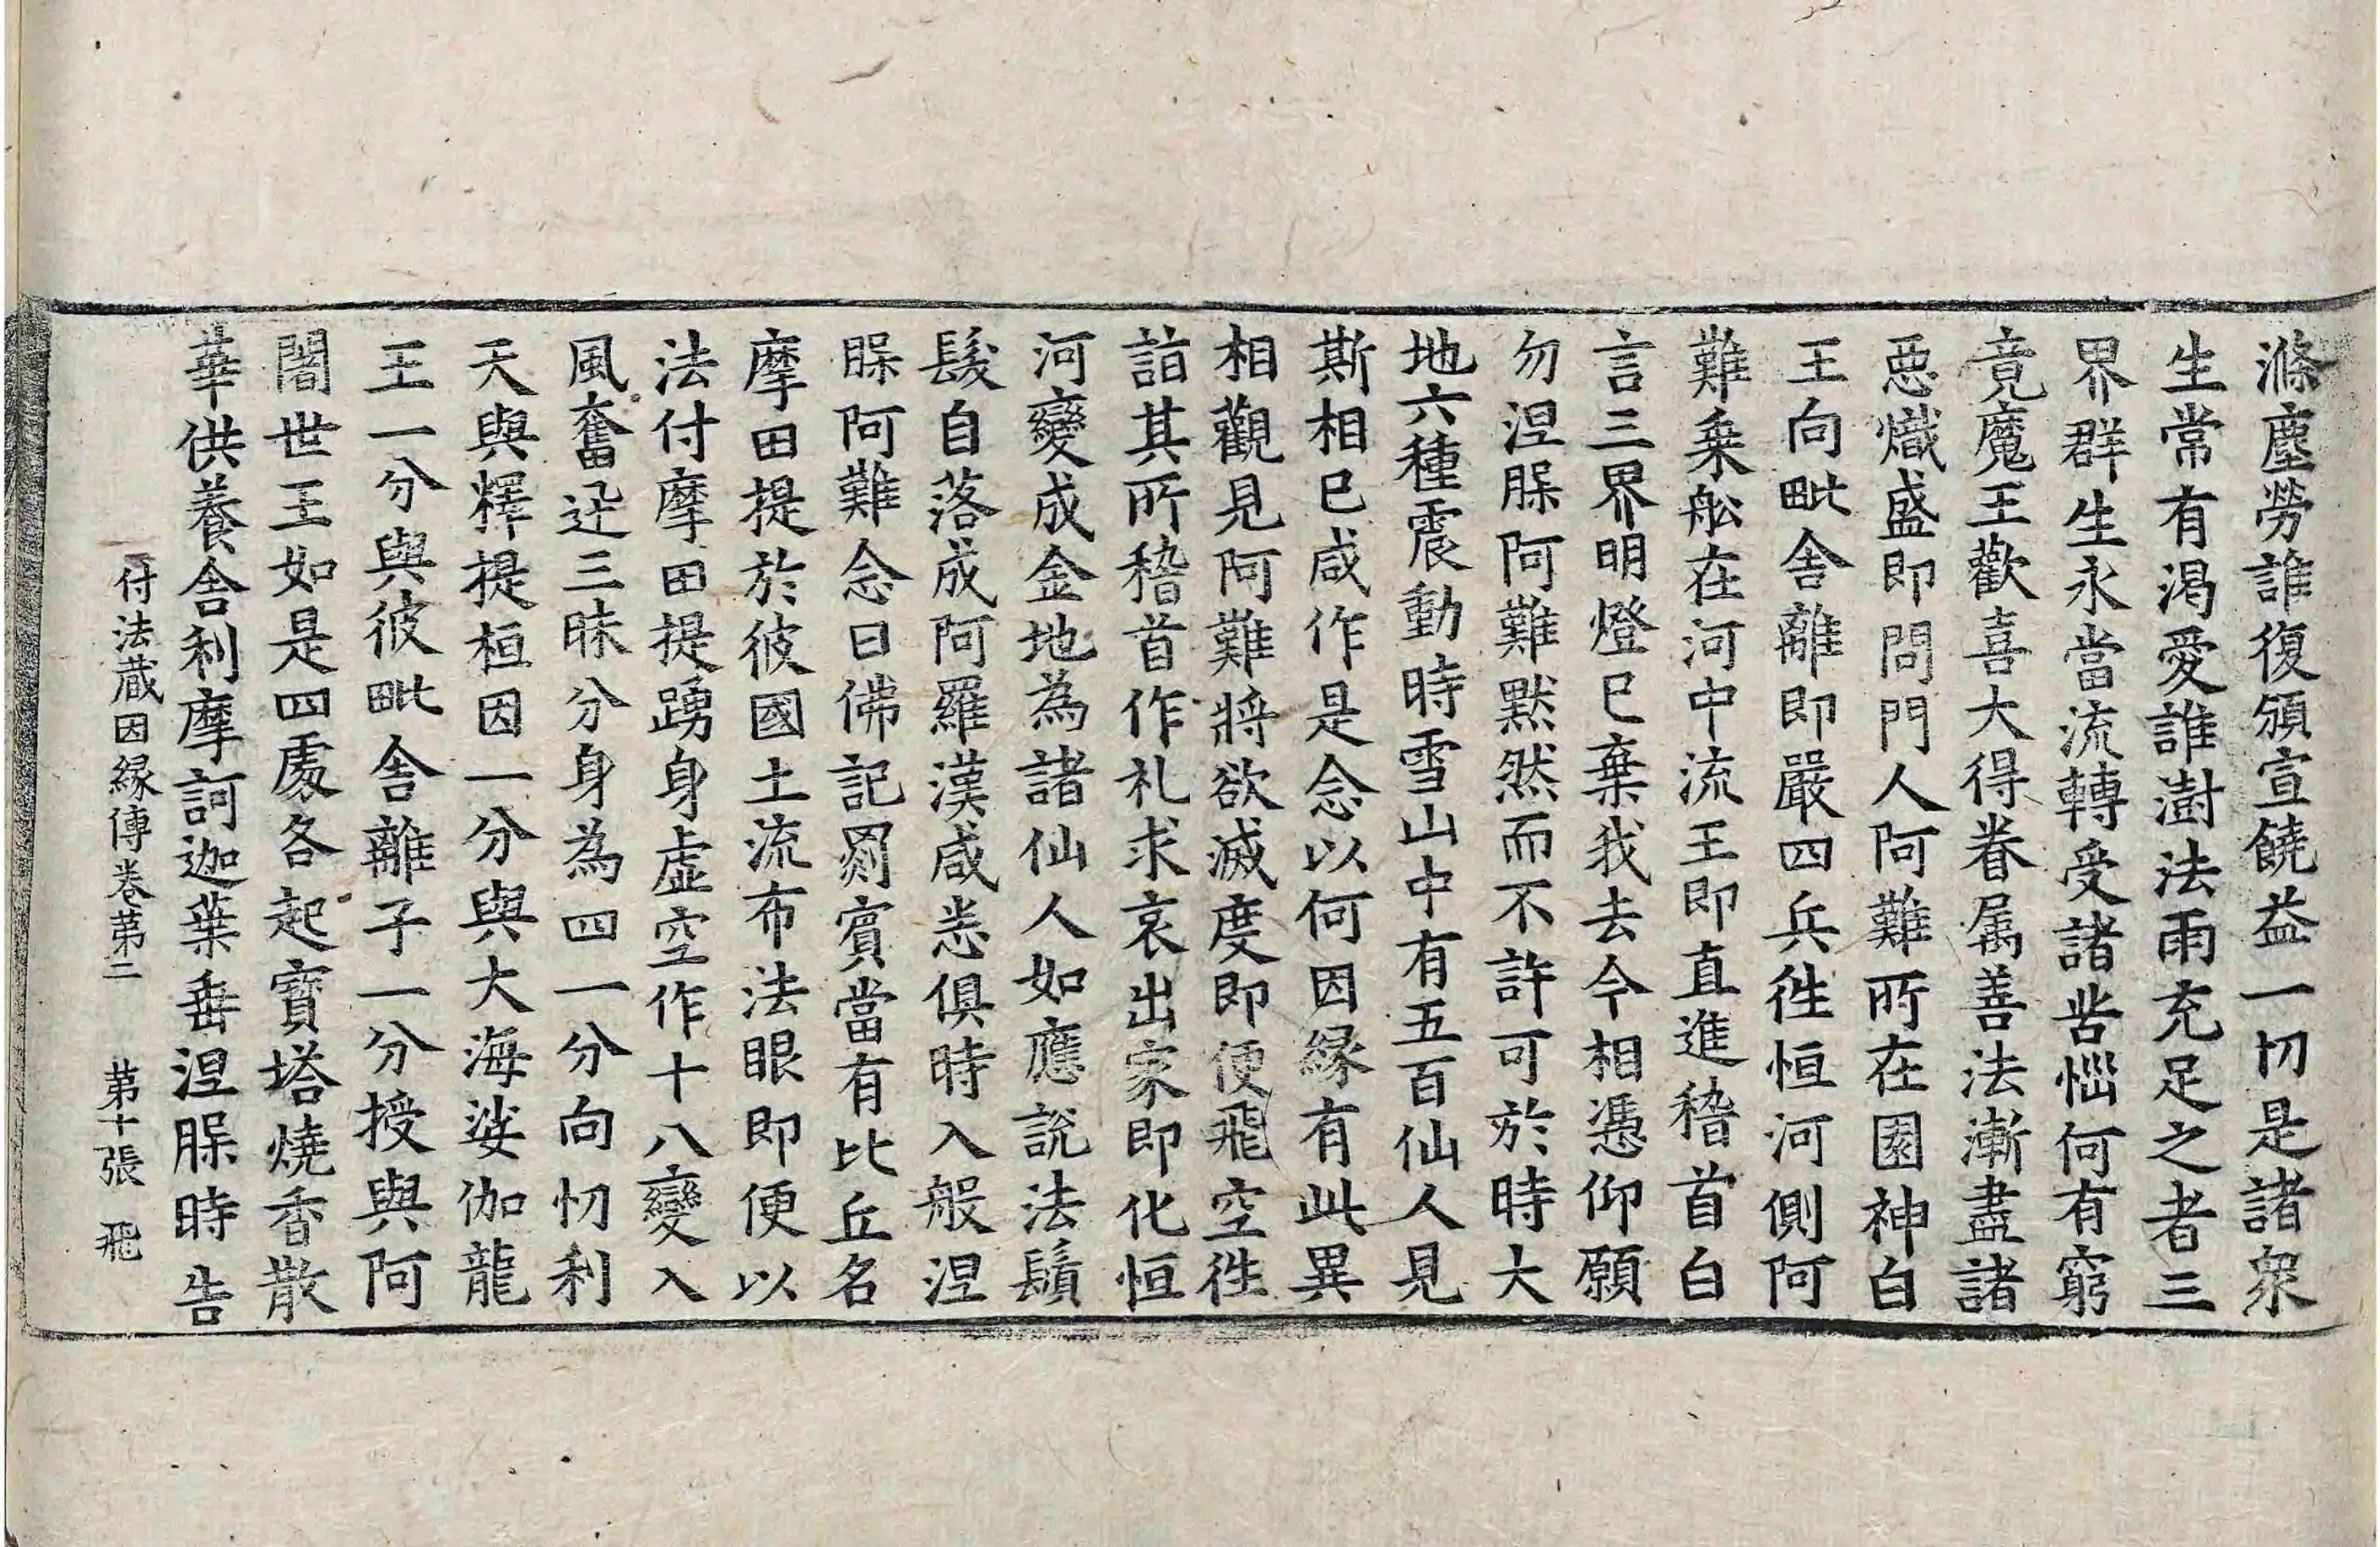 滌塵勞誰復頒宣饒益一切是諸衆
生常有渴愛誰澍法雨充足之者三
界群生永當流轉受諸苦惱何有窮
竟魔王歡喜大得眷属善法漸盡諸
惡熾盛即問門人阿難所在園神白
王向毗舍離即嚴四兵徃恒河側阿
難乗舩在河中流王即直進稽首白
言三界明燈已棄我去今相憑仰願
勿涅腂阿難黙然而不許可於時大
地六種震動時雪山中有五百仙人見
斯相已咸作是念以何因緣有此異
相觀見阿難將欲滅度即便飛空徃
詣其所稽首作礼求哀出家即化恒
河變成金地為諸仙人如應說法鬚
髮自落成阿羅漢咸悉俱時入般涅
腂阿難念曰佛記罽賓當有比丘名
摩田提於彼國土流布法眼即便以
法付摩田提踴身虛空作十八變入
風奮迅三昧分身為四一分向忉利
天與釋提桓因一分與大海娑伽龍
王一分與彼毗舍離子一分授與阿
闍世王如是四處各起寶塔燒香散
華供養舍利摩訶迦葉垂涅腂時告
付法蔵因緣傳卷苐二 苐十張 飛